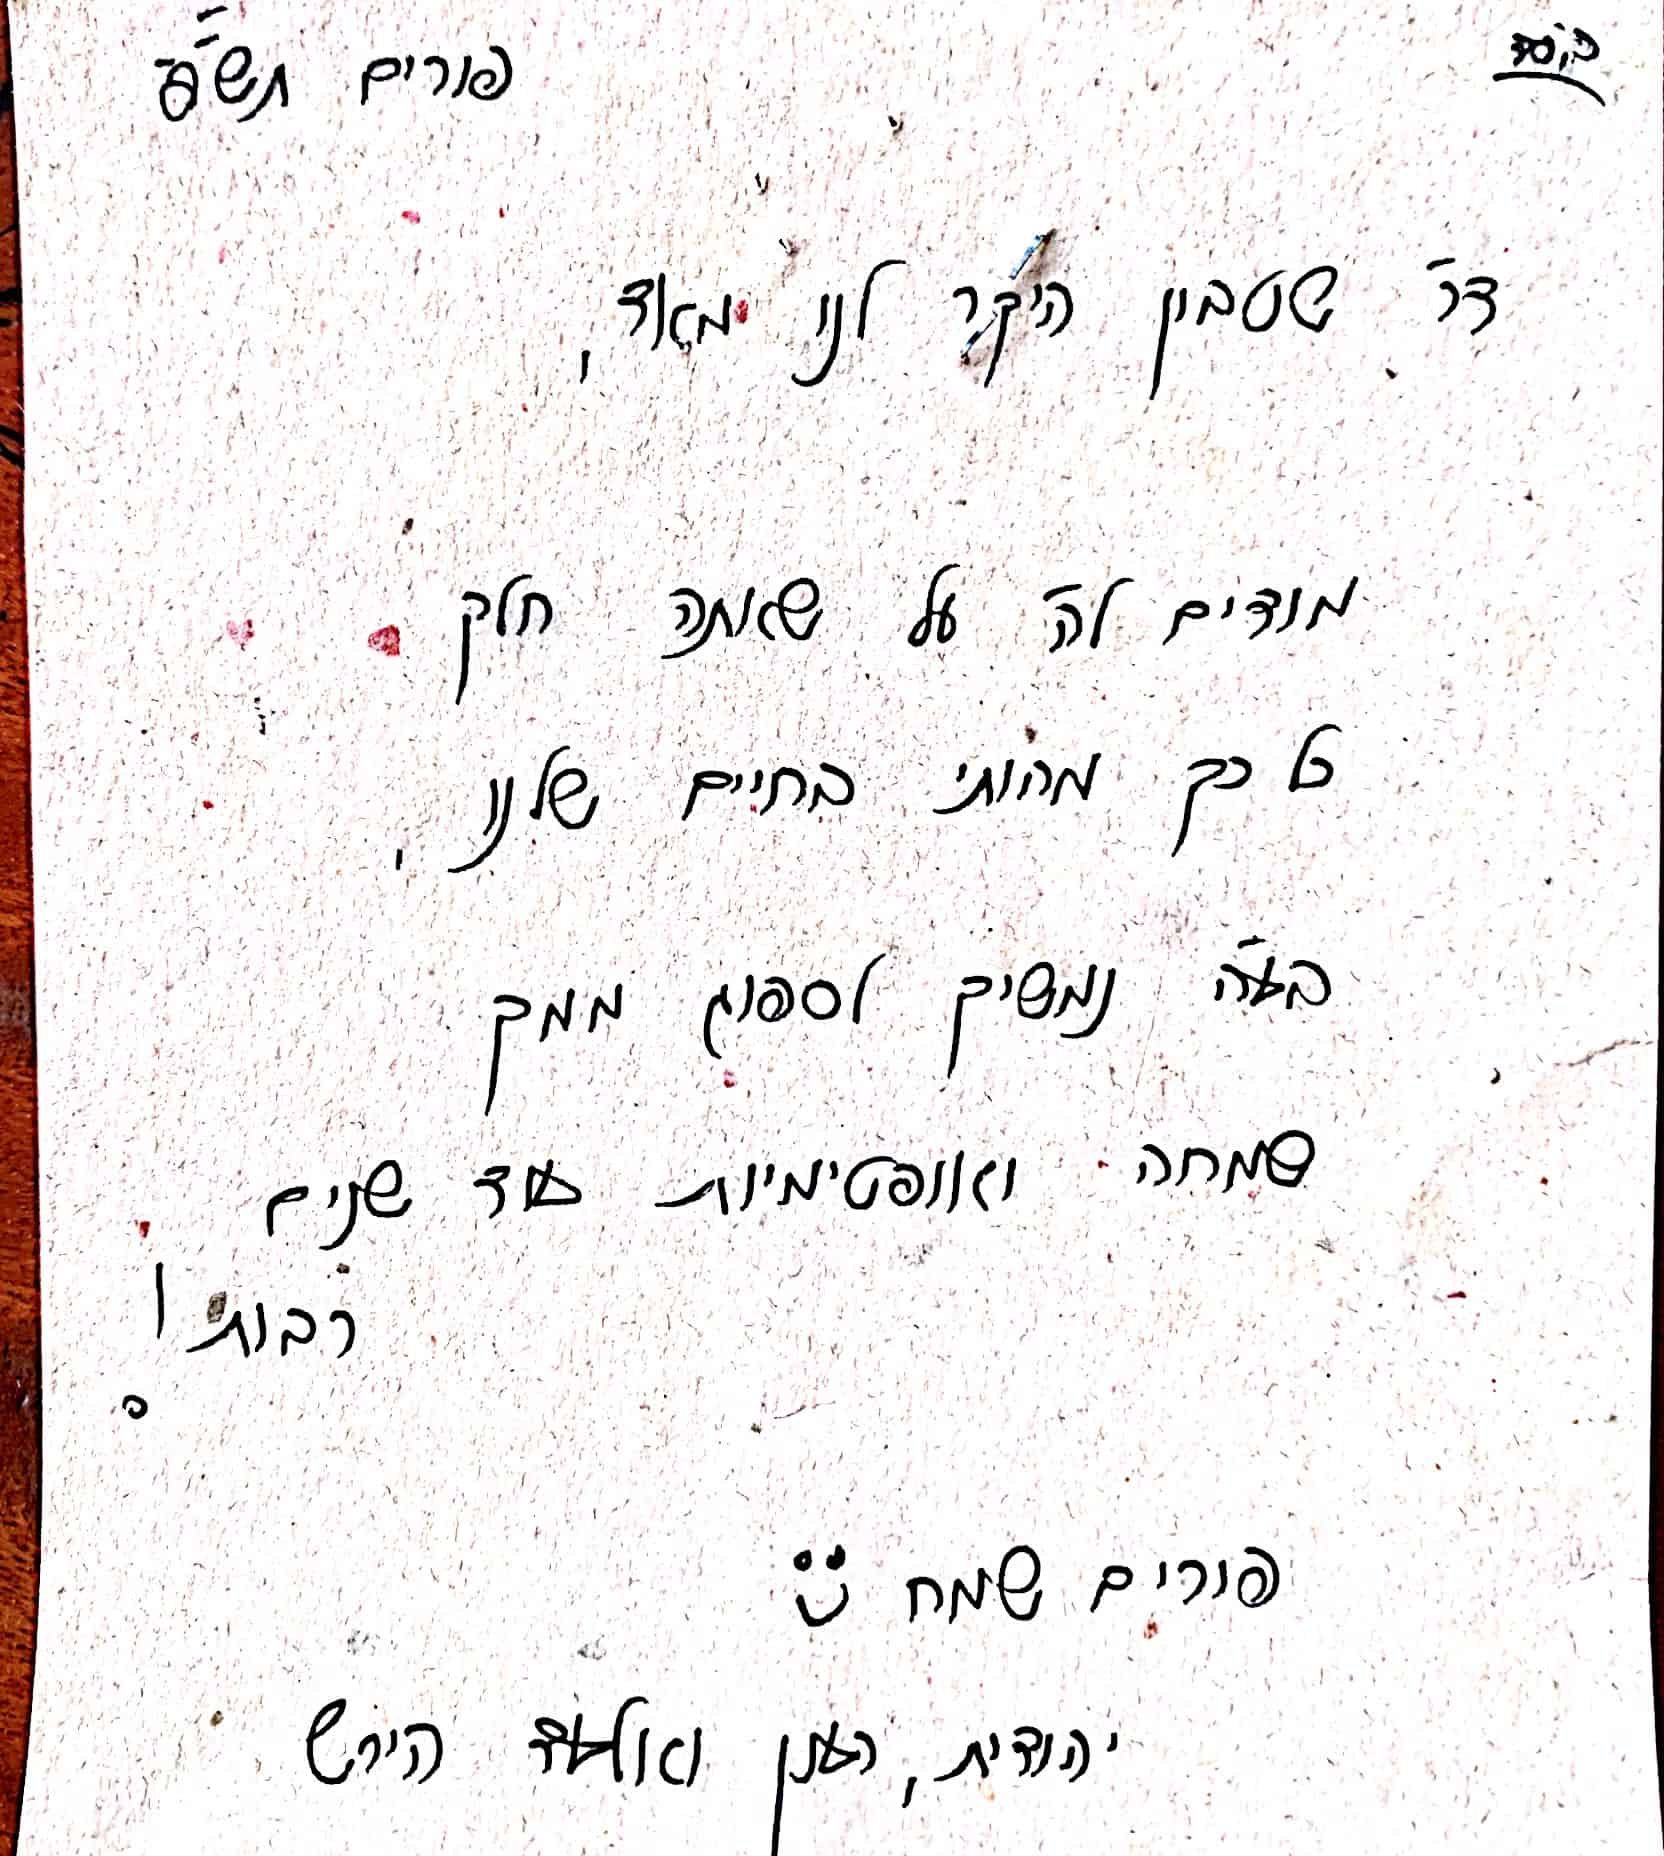 בס"ד
פורים תש"פ
דר' שטבון היקר לנו מאוד,
מודים לה' על שאתה חלק
כל כך מהותי בחיים שלנו,
בע"ה נמשיך לספוג ממך
שמחה ואופטימיות עוד שנים
רבות!
פורים שמח
יהודית, רענן ואלעד הירש